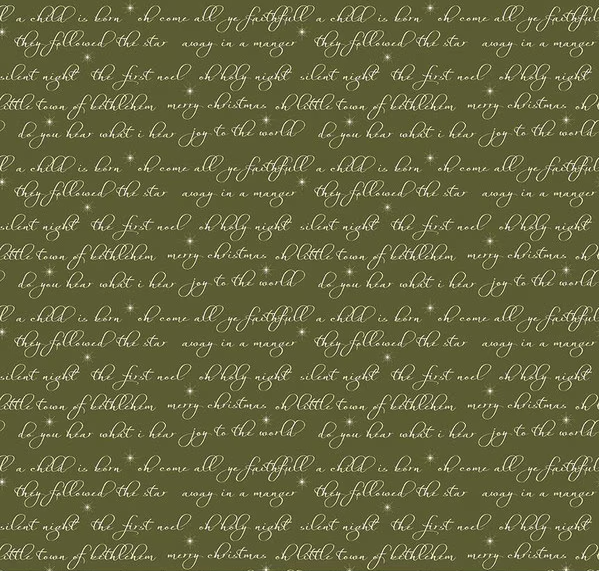 a child is born oh come all ye faithfull a child is born oh come all ye faithfull
they followed the star away in a manger they followed the star away in a manger
silent night the first noel oh holy night silent night the first noel oh holy night
little town of bethlehem merry christmas oh little town of bethlehem merry christmas oh
do you hear what i hear joy to the world do you hear what i hear joy to the world
a child is born oh come all ye faithfull a child is born oh come all ye faithfull
they followed the star away in a manger they followed the star away in a manger
silent night the first noel oh holy night silent night the first noel oh holy night
little town of bethlehem merry christmas oh little town of bethlehem merry christmas oh
do you hear what i hear joy to the world do you hear what i hear joy to the world
a child is born oh come all ye faithfull a child is born oh come all ye faithfull
they followed the star away in a manger they followed the star away in a manger
silent night the first noel oh holy night silent night the first noel oh holy night
little town of bethlehem merry christmas oh little town of bethlehem merry christmas oh
do you hear what i hear joy to the world do you hear what i hear joy to the world
a child is born oh come all ye faithfull a child is born oh come all ye faithfull
they followed the star away in a manger they followed the star away in a manger
silent night the first noel oh holy night silent night the first noel oh holy night
little town of bethlehem merry christmas oh little town of bethlehem merry christmas oh